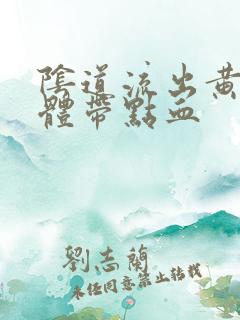 陰道流出黃
體帶點血
劉志蘭
未經同意禁止轉載